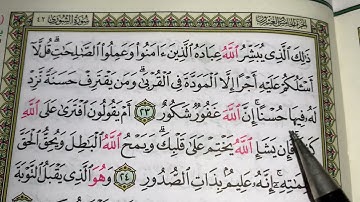 ٤٢ سُورَةُ الشُّورَىٰ
ذَٰلِكَ ٱلَّذِى يُبَشِّرُ ٱللَّهُ عِبَادَهُ ٱلَّذِينَ ءَامَنُوا۟ وَعَمِلُوا۟ ٱلصَّٰلِحَٰتِ ۗ قُل لَّآ
أَسْـَٔلُكُمْ عَلَيْهِ أَجْرًا إِلَّا ٱلْمَوَدَّةَ فِى ٱلْقُرْبَىٰ ۗ وَمَن يَقْتَرِفْ حَسَنَةً نَّزِدْ
لَهُۥ فِيهَا حُسْنًا ۚ إِنَّ ٱللَّهَ غَفُورٌ شَكُورٌ ٢٣ أَمْ يَقُولُونَ ٱفْتَرَىٰ عَلَى ٱللَّهِ
فَإِن يَشَإِ ٱللَّهُ يَخْتِمْ عَلَىٰ قَلْبِكَ ۗ وَيَمْحُ ٱللَّهُ ٱلْبَٰطِلَ وَيُحِقُّ ٱلْحَقَّ
إِنَّهُۥ عَلِيمٌۢ بِذَاتِ ٱلصُّدُورِ ٢٤ وَهُوَ ٱلَّذِى يَقْبَلُ ٱلتَّوْبَةَ